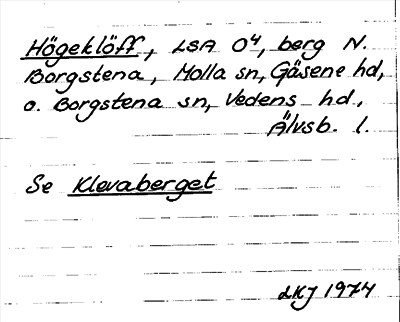 Högeklöff, LSA O4, berg N.
Borgstena, Molla sn, Gäsene hd,
o. Borgstena sn, Vedens hd,
Älvsb. l.
Se Klevaberget
LKJ 1974